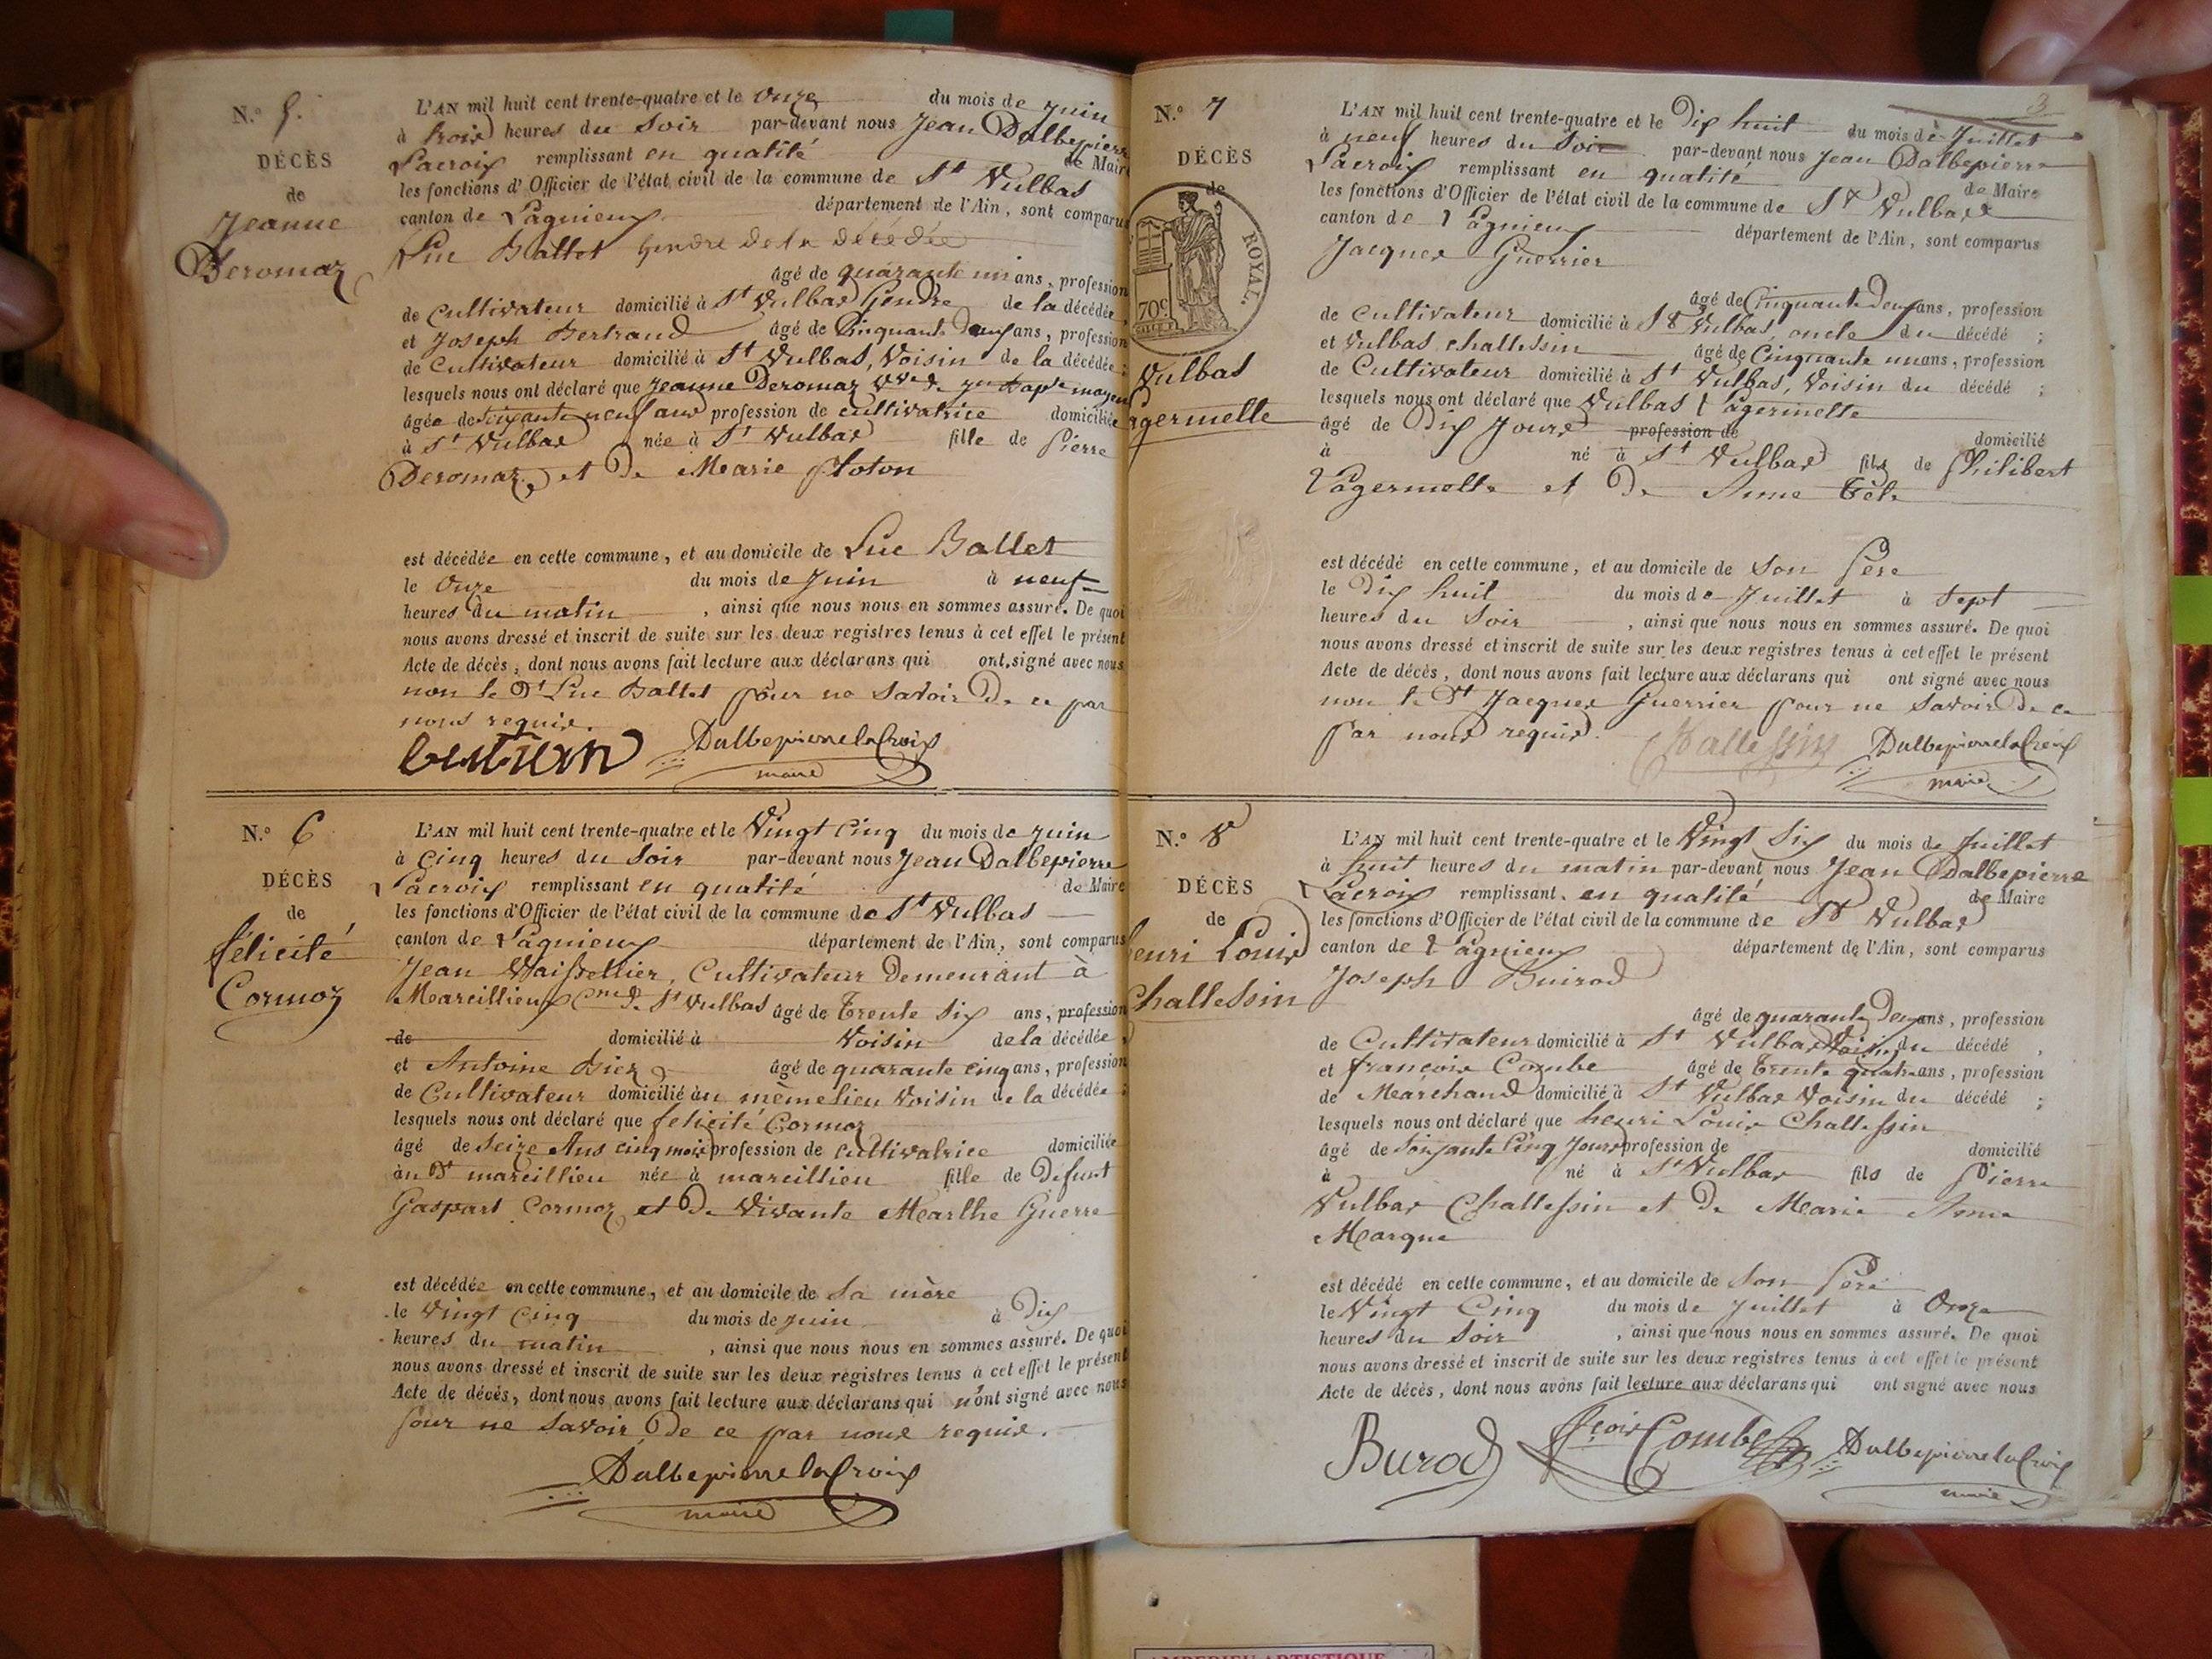 N.° 5.
DÉCÈS
de
Jeanne
Deromaz
L'AN mil huit cent trente-quatre et le onze du mois de Juin
à trois heures du Soir par-devant nous Jean Dalbepierre
Lacroix remplissant en qualité de Maire
les fonctions d'Officier de l'état civil de la commune de St Vulbas
canton de Lagnieux département de l'Ain, sont comparus
Luc Ballet Gendre de la décédée
âgé de quarante un ans, profession
de Cultivateur domicilié à St Vulbas Gendre de la décédée,
et Joseph Bertrand âgé de Cinquante Deux ans, profession
de Cultivateur domicilié à St Vulbas, Voisin de la décédée;
lesquels nous ont déclaré que Jeanne Deromaz Vve de Jn Bapte
âgée de Soixante neuf ans profession de cultivatrice domiciliée
à St Vulbas née à St Vulbas fille de Pierre
Deromaz, et De Marie
est décédée en cette commune, et au domicile de Luc Ballet
le Onze du mois de Juin à neuf
heures du matin, ainsi que nous nous en sommes assuré. De quoi
nous avons dressé et inscrit de suite sur les deux registres tenus à cet effet le présent
Acte de décès, dont nous avons fait lecture aux déclarans qui ont signé avec nous
non le Dt Luc Ballet pour ne Savoir De ce par
nous requis.
DalbepierrelaCroix
maire
N.° 6
DÉCÈS
de
félicité
Cormoz
L'AN mil huit cent trente-quatre et le Vingt Cinq du mois de Juin
à Cinq heures du Soir par-devant nous Jean Dalbepierre
Lacroix remplissant en qualité de Maire
les fonctions d'Officier de l'état civil de la commune de St Vulbas
canton de Lagnieux département de l'Ain, sont comparus
Jean Vaissellier, Cultivateur Demeurant à
Marcillieux Cne de St Vulbas âgé de Trente Six ans, profession
de domicilié à Voisin de la décédée,
et Antoine Biez âgé de quarante cinq ans, profession
de Cultivateur domicilié au même lieu Voisin de la décédée;
lesquels nous ont déclaré que félicité Cormoz
âgé de Seize Ans cinq mois profession de cultivatrice domiciliée
au Dt marcillieu née à marcillieu fille de Defunt
Gaspart Cormoz et De Vivante Marthe Guerre
est décédée en cette commune, et au domicile de Sa mère
le Vingt Cinq du mois de Juin à Dix
heures du matin, ainsi que nous nous en sommes assuré. De quoi
nous avons dressé et inscrit de suite sur les deux registres tenus à cet effet le présent
Acte de décès, dont nous avons fait lecture aux déclarans qui n'ont signé avec nous
Pour ne Savoir De ce par nous requis.
DalbepierrelaCroix
maire
3
N.° 7
DÉCÈS
de
ROYAL.
70c
Vulbas
agermette
L'AN mil huit cent trente-quatre et le Dix huit du mois de Juillet
à neuf heures du Soir par-devant nous Jean Dalbepierre
Lacroix remplissant en qualité de Maire
les fonctions d'Officier de l'état civil de la commune de St Vulbas
canton de Lagnieux département de l'Ain, sont comparus
Jacques Guerrier
âgé de Cinquante Deux ans, profession
de Cultivateur domicilié à St Vulbas oncle du décédé;
et Vulbas challessin âgé de Cinquante un ans, profession
de Cultivateur domicilié à St Vulbas, Voisin du décédé;
lesquels nous ont déclaré que Vulbas Lagermette
âgé de Dix Jours profession de domicilié
à né à St Vulbas fils de Philibert
Lagermette et De Anne
est décédé en cette commune, et au domicile de Son Père
le Dix huit du mois de Juillet à Sept
heures du Soir, ainsi que nous nous en sommes assuré. De quoi
nous avons dressé et inscrit de suite sur les deux registres tenus à cet effet le présent
Acte de décès, dont nous avons fait lecture aux déclarans qui ont signé avec nous
non le Dt Jacques Guerrier pour ne Savoir De ce
par nous requis.
Challessin DalbepierrelaCroix
maire
N.° 8
DÉCÈS
de
enri Louis
Challessin
L'AN mil huit cent trente-quatre et le Vingt Six du mois de Juillet
à huit heures du matin par-devant nous Jean Dalbepierre
Lacroix remplissant en qualité de Maire
les fonctions d'Officier de l'état civil de la commune de St Vulbas
canton de Lagnieux département de l'Ain, sont comparus
Joseph Buirod
âgé de quarante Deux ans, profession
de Cultivateur domicilié à St Vulbas Voisin du décédé,
et francois Combe âgé de Trente quatre ans, profession
de Maréchand domicilié à St Vulbas Voisin du décédé;
lesquels nous ont déclaré que henri Louis Challessin
âgé de Soixante Cinq Jours profession de domicilié
à né à St Vulbas fils de Pierre
Vulbas Challessin et De Marie Anne
Marque
est décédé en cette commune, et au domicile de Son Père
le Vingt Cinq du mois de Juillet à Onze
heures du Soir, ainsi que nous nous en sommes assuré. De quoi
nous avons dressé et inscrit de suite sur les deux registres tenus à cet effet le présent
Acte de décès, dont nous avons fait lecture aux déclarans qui ont signé avec nous
Burod fçois Combe DalbepierrelaCroix
maire